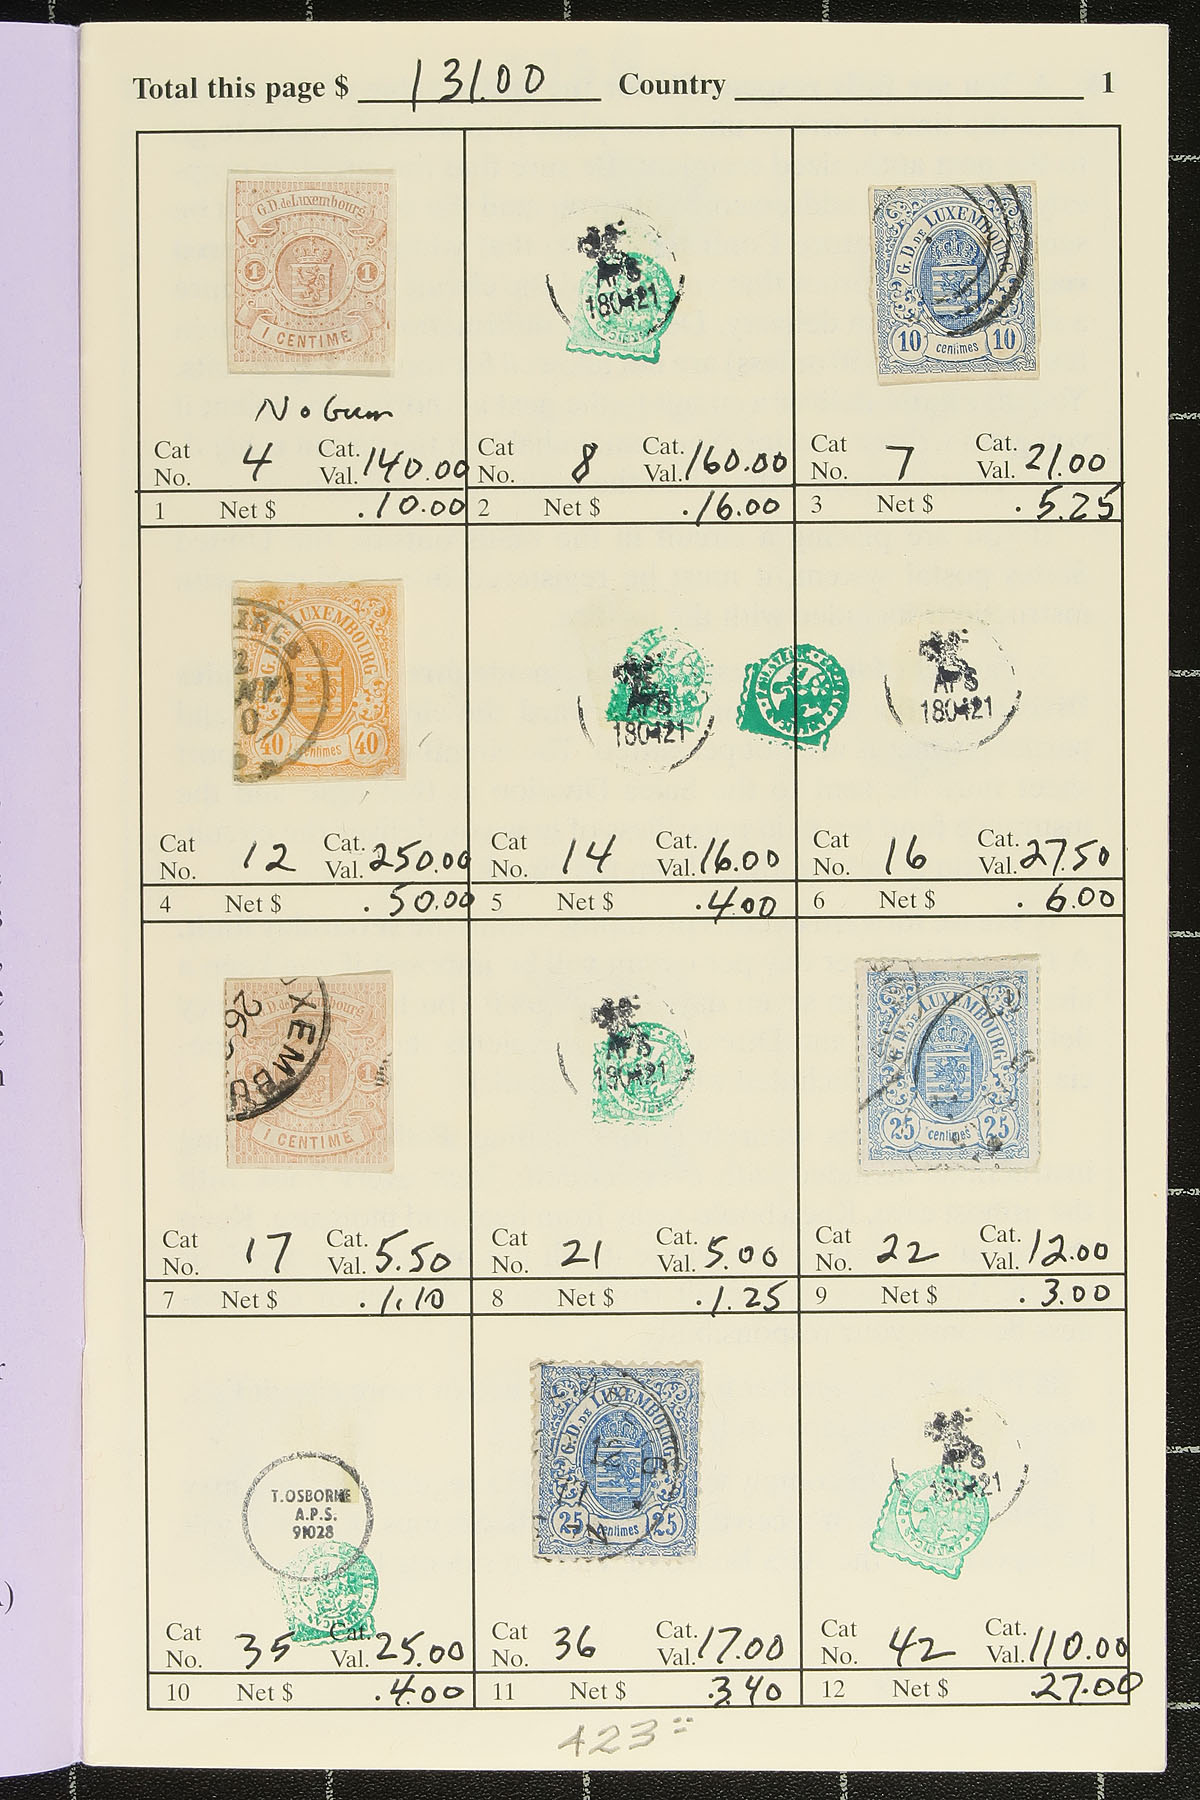 Total this page $ 131.00 Country 1
G.D. de Luxembourg
1 1
1 CENTIME
No Gum
Cat No. 4 Cat. Val. 140.00
1 Net $ .10.00
APS
180421
Cat No. 8 Cat. Val. 160.00
2 Net $ .16.00
G.D. DE LUXEMBOURG
10 centimes 10
Cat No. 7 Cat. Val. 21.00
3 Net $ .5.25
LUXEMBOURG
40 centimes 40
Cat No. 12 Cat. Val. 250.00
4 Net $ .50.00
APS
180421
Cat No. 14 Cat. Val. 16.00
5 Net $ .4.00
APS
180421
Cat No. 16 Cat. Val. 27.50
6 Net $ .6.00
G.D. de Luxembourg
1
1 CENTIME
Cat No. 17 Cat. Val. 5.50
7 Net $ .1.10
APS
180421
Cat No. 21 Cat. Val. 5.00
8 Net $ .1.25
G.D. DE LUXEMBOURG
25 centimes 25
Cat No. 22 Cat. Val. 12.00
9 Net $ .3.00
T.OSBORNE
A.P.S.
91028
Cat No. 35 Cat. Val. 25.00
10 Net $ .4.00
G.D. DE LUXEMBOURG
25 centimes 25
Cat No. 36 Cat. Val. 17.00
11 Net $ .3.40
APS
180421
Cat No. 42 Cat. Val. 110.00
12 Net $ .27.00
423=